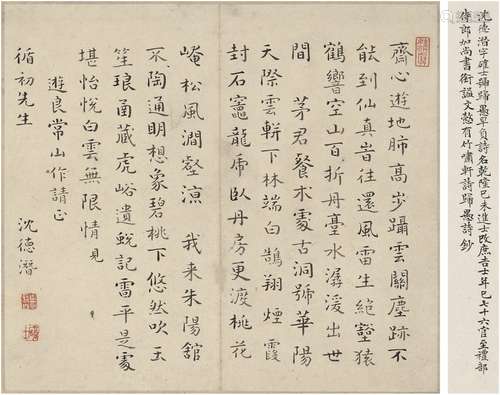 沈德潛字確士號歸愚早負詩名乾隆己未進士改庶吉士年已七十六官至禮部
侍郎加尚書銜謚文愨有竹嘯軒詩歸愚詩鈔
齋心遊地肺高步躡雲關塵跡不
能到仙真昔往還風雷生絕壑猿
鶴響空山百折丹臺水潺湲出世
間　茅君餐朮處古洞號華陽
天際雲軿下林端白鵠翔煙霞
封石竈龍虎臥丹房更渡桃花
崦松風澗壑涼　我来朱陽館
不見陶通明想象碧桃下悠然吹玉
笙琅函藏虎峪遺蛻記雷平是處
堪怡悅白雲無限情
遊良常山作請正
循初先生
沈德潛